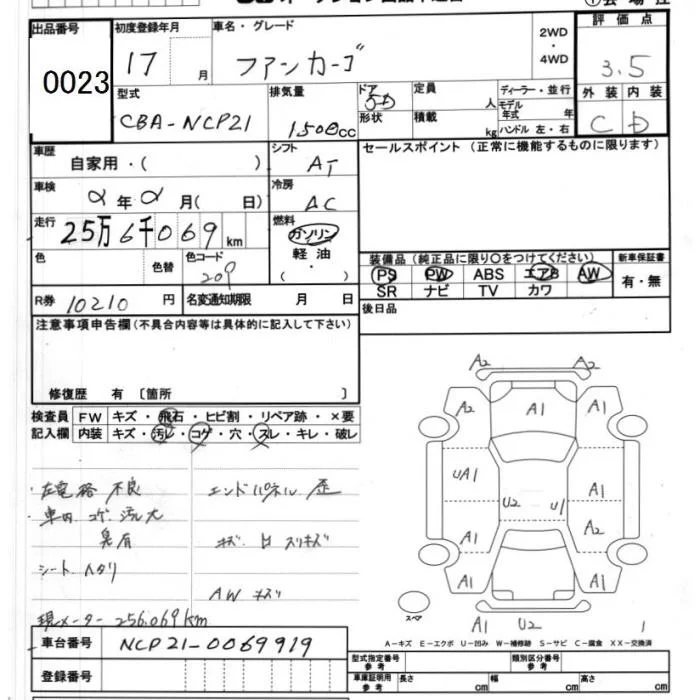 出品番号
0023
初度登録年月
17 月
車名・グレード
ファンカーゴ
2WD
・
4WD
評価点
3.5
型式
CBA-NCP21
排気量
1,500cc
ドア
5D
形状
定員
人
積載
kg
ディーラー・並行
モデル年式 年
ハンドル 左・右
外装 内装
C D
車歴
自家用・( )
シフト
AT
セールスポイント(正常に機能するものに限ります)
車検
年 月( 日)
冷房
AC
走行
25万6千069km
燃料
ガソリン
軽油
( ・ )
色
色替
色コード
209
装備品(純正品に限り○をつけてください)
PS PW ABS エアB AW
SR ナビ TV カワ
新車保証書
有・無
R券 10210 円
名変通知期限 月 日
後日品
注意事項申告欄(不具合内容等は具体的に記入して下さい)
修復歴 有〔箇所 〕
検査員
記入欄
FW キズ・飛石・ヒビ割・リペア跡・×要
内装 キズ・汚レ・コゲ・穴・スレ・キレ・破レ
・車内 コゲ 汚レ大
臭有
シート ヘタリ
エンドパネル 歪
AW キズ
現メーター 256,069km
A2 A2
A2 A1 A1
UA1 A1
U2 U1
A2
A1 A1 A1
A1 U2 1
スペア
A-キズ E-エクボ U-凹み W-補修跡 S-サビ C-腐食 XX-交換済
車台番号
NCP21-0069919
登録番号
型式指定番号
参考
類別区分番号
参考
車庫証明用
参考
長さ cm
幅 cm
高さ cm